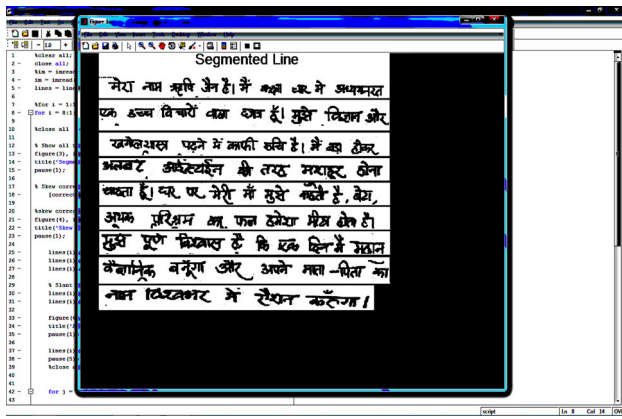 Figure
File Edit View Insert Tools Desktop Window Help
Segmented Line
मेरा नाम ऋषि जैन है। मैं कक्षा चार में अध्ययनरत
एक उच्च विचारों वाला छात्र हूँ। मुझे विज्ञान और
खगोलशास्त्र पढ़ने में काफी रुचि है। मैं बड़ा होकर
अलबर्ट आईंस्टाईन की तरह मशहूर होना
चाहता हूँ। घर पर मेरी माँ मुझे कहती है, बेटा,
अथक परिश्रम का फल हमेशा मीठा होता है।
मुझे पूर्ण विश्वास है कि एक दिन मैं महान
वैज्ञानिक बनूँगा और अपने माता-पिता का
नाम विश्वभर में रौशन करूँगा।
1 %clear all;
2 - close all;
3 %im = imread
4 - im = imread
5 - lines = line
6
7 %for i = 1:
8 - for i = 8:
9
10 %close all
11
12 % Show all
13 - figure(3),
14 - title('Segme
15 - pause(1);
16
17 % Skew corre
18 [correct
19
20 %skew correc
21 - figure(4),
22 - title('Skew
23 - pause(1);
24
25 - lines(i)
26 - lines(i)
27 - lines(i)
28
29 % Slant
30 - lines(i)
31 - lines(i)
32
33 - figure(
34 - title('
35 - pause(1)
36
37 - lines(i)
38 - pause(5)
39 %close
40
41
42 - for j =
43
script Ln 8 Col 14 OV